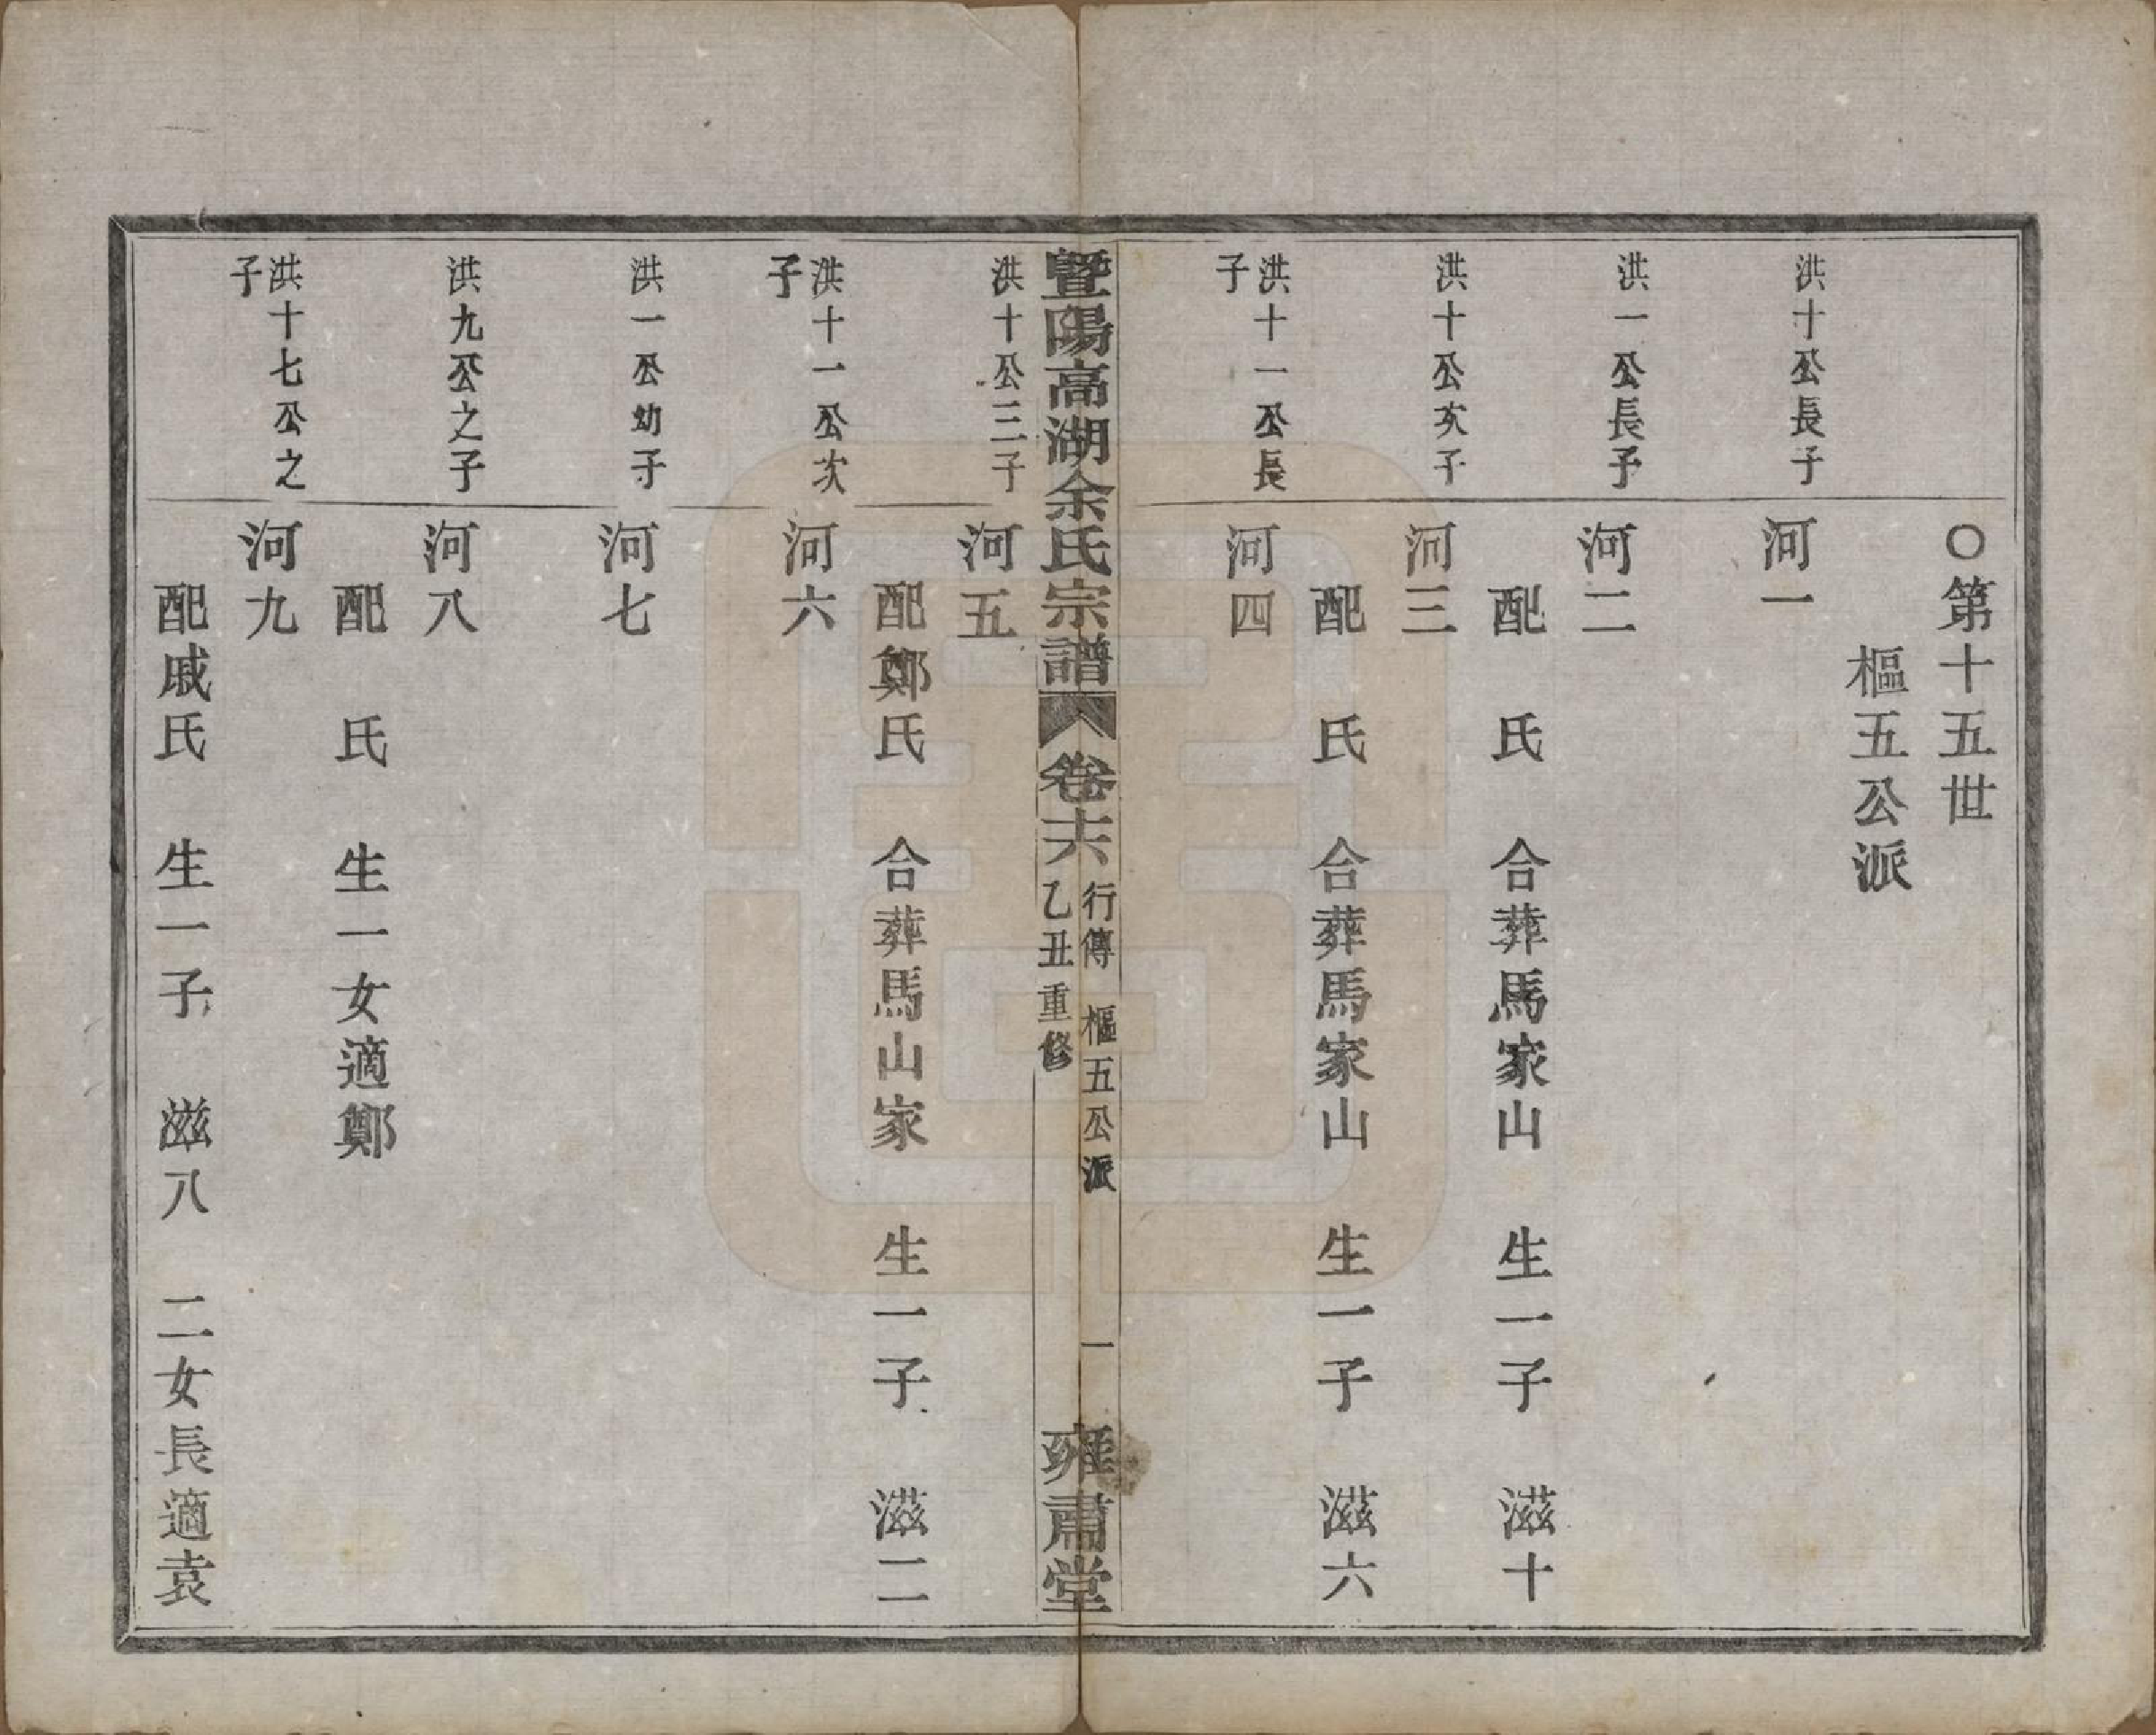 ○第十五世
樞五公派
洪十公長子
河一
洪一公長子
河二
配　氏　合葬馬家山　生一子　滋十
洪十公次子
河三
配　氏　合葬馬家山　生一子　滋六
洪十一公長
子
河四
暨陽高湖余氏宗譜　卷十六
行傳　樞五公派　一
乙丑重修
雍肅堂
洪十公三子
河五
配鄭氏　合葬馬山家　生一子　滋二
洪十一公次
子
河六
洪一公幼子
河七
洪九公之子
河八
配　氏　生一女適鄭
洪十七公之
子
河九
配戚氏　生一子　滋八　二女長適袁